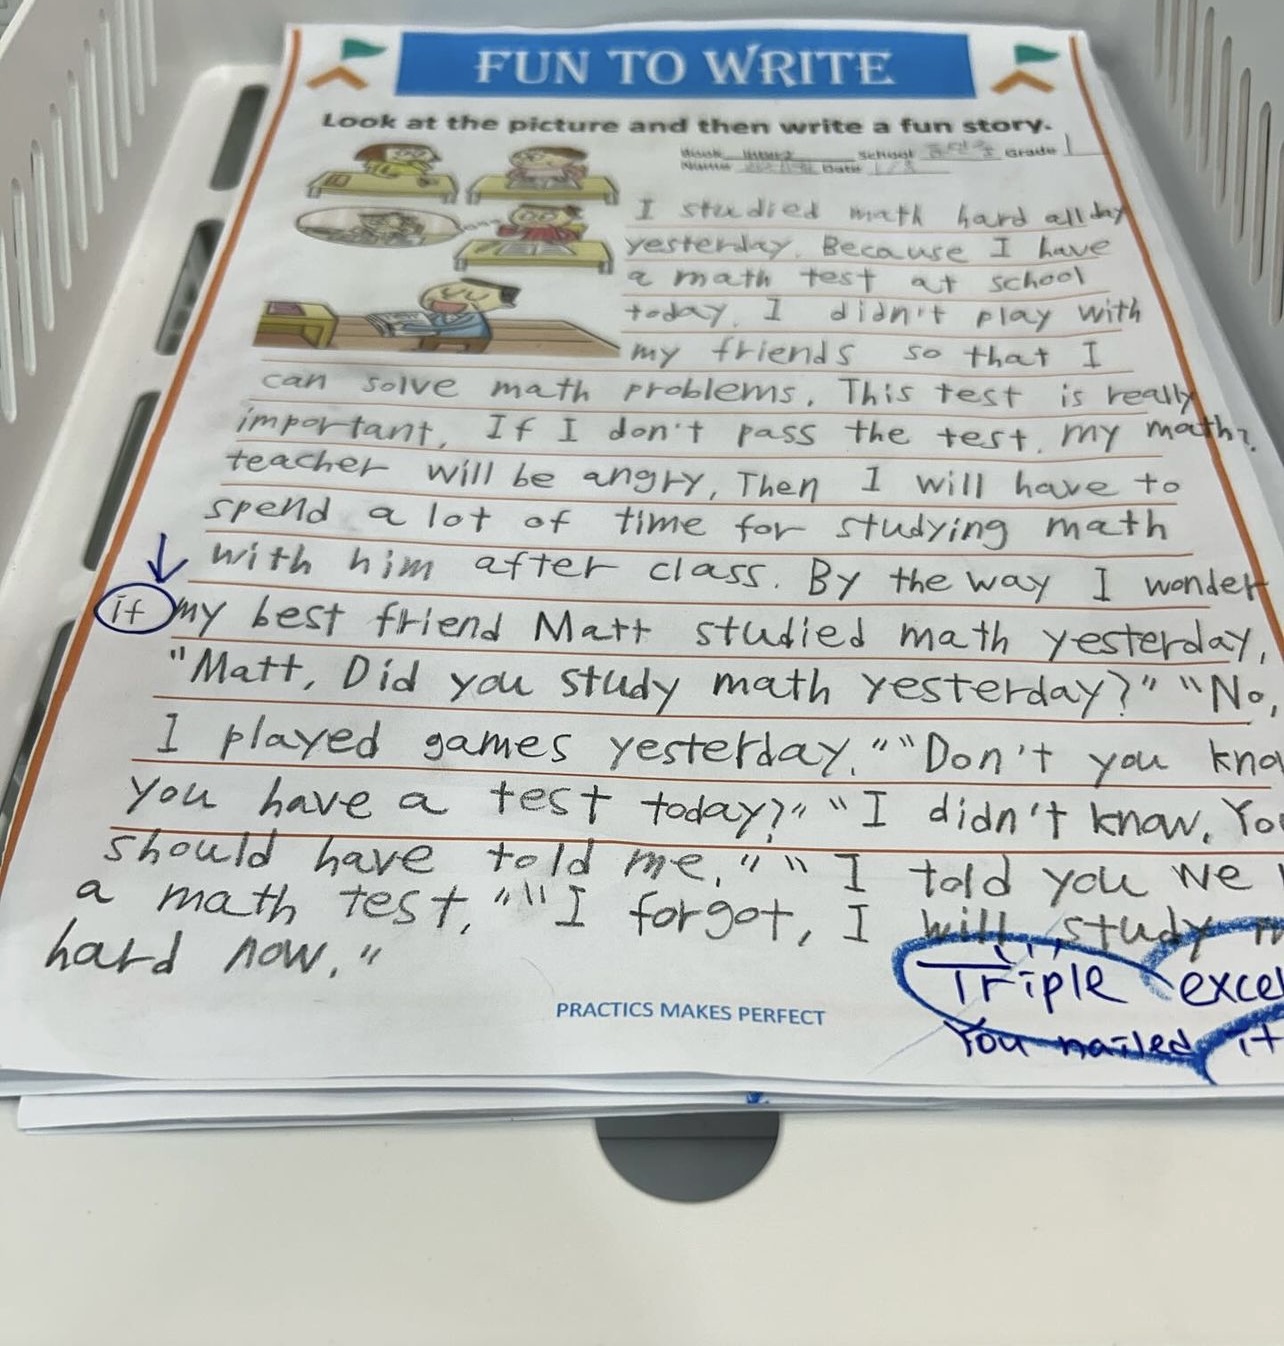 FUN TO WRITE
Look at the picture and then write a fun story.
School Grade 1
Name Date 1/3
I studied math hard all day
yesterday. Because I have
a math test at school
today. I didn't play with
my friends so that I
can solve math problems. This test is really
important. If I don't pass the test. my math
teacher will be angry. Then I will have to
spend a lot of time for studying math
with him after class. By the way I wonder
if my best friend Matt studied math yesterday.
"Matt, Did you study math yesterday?" "No,
I played games yesterday." "Don't you
you have a test today?" "I didn't know.
should have told me." "I told you we
a math test." "I forgot, I will study
hard now."
Triple
You nailed it
PRACTICS MAKES PERFECT